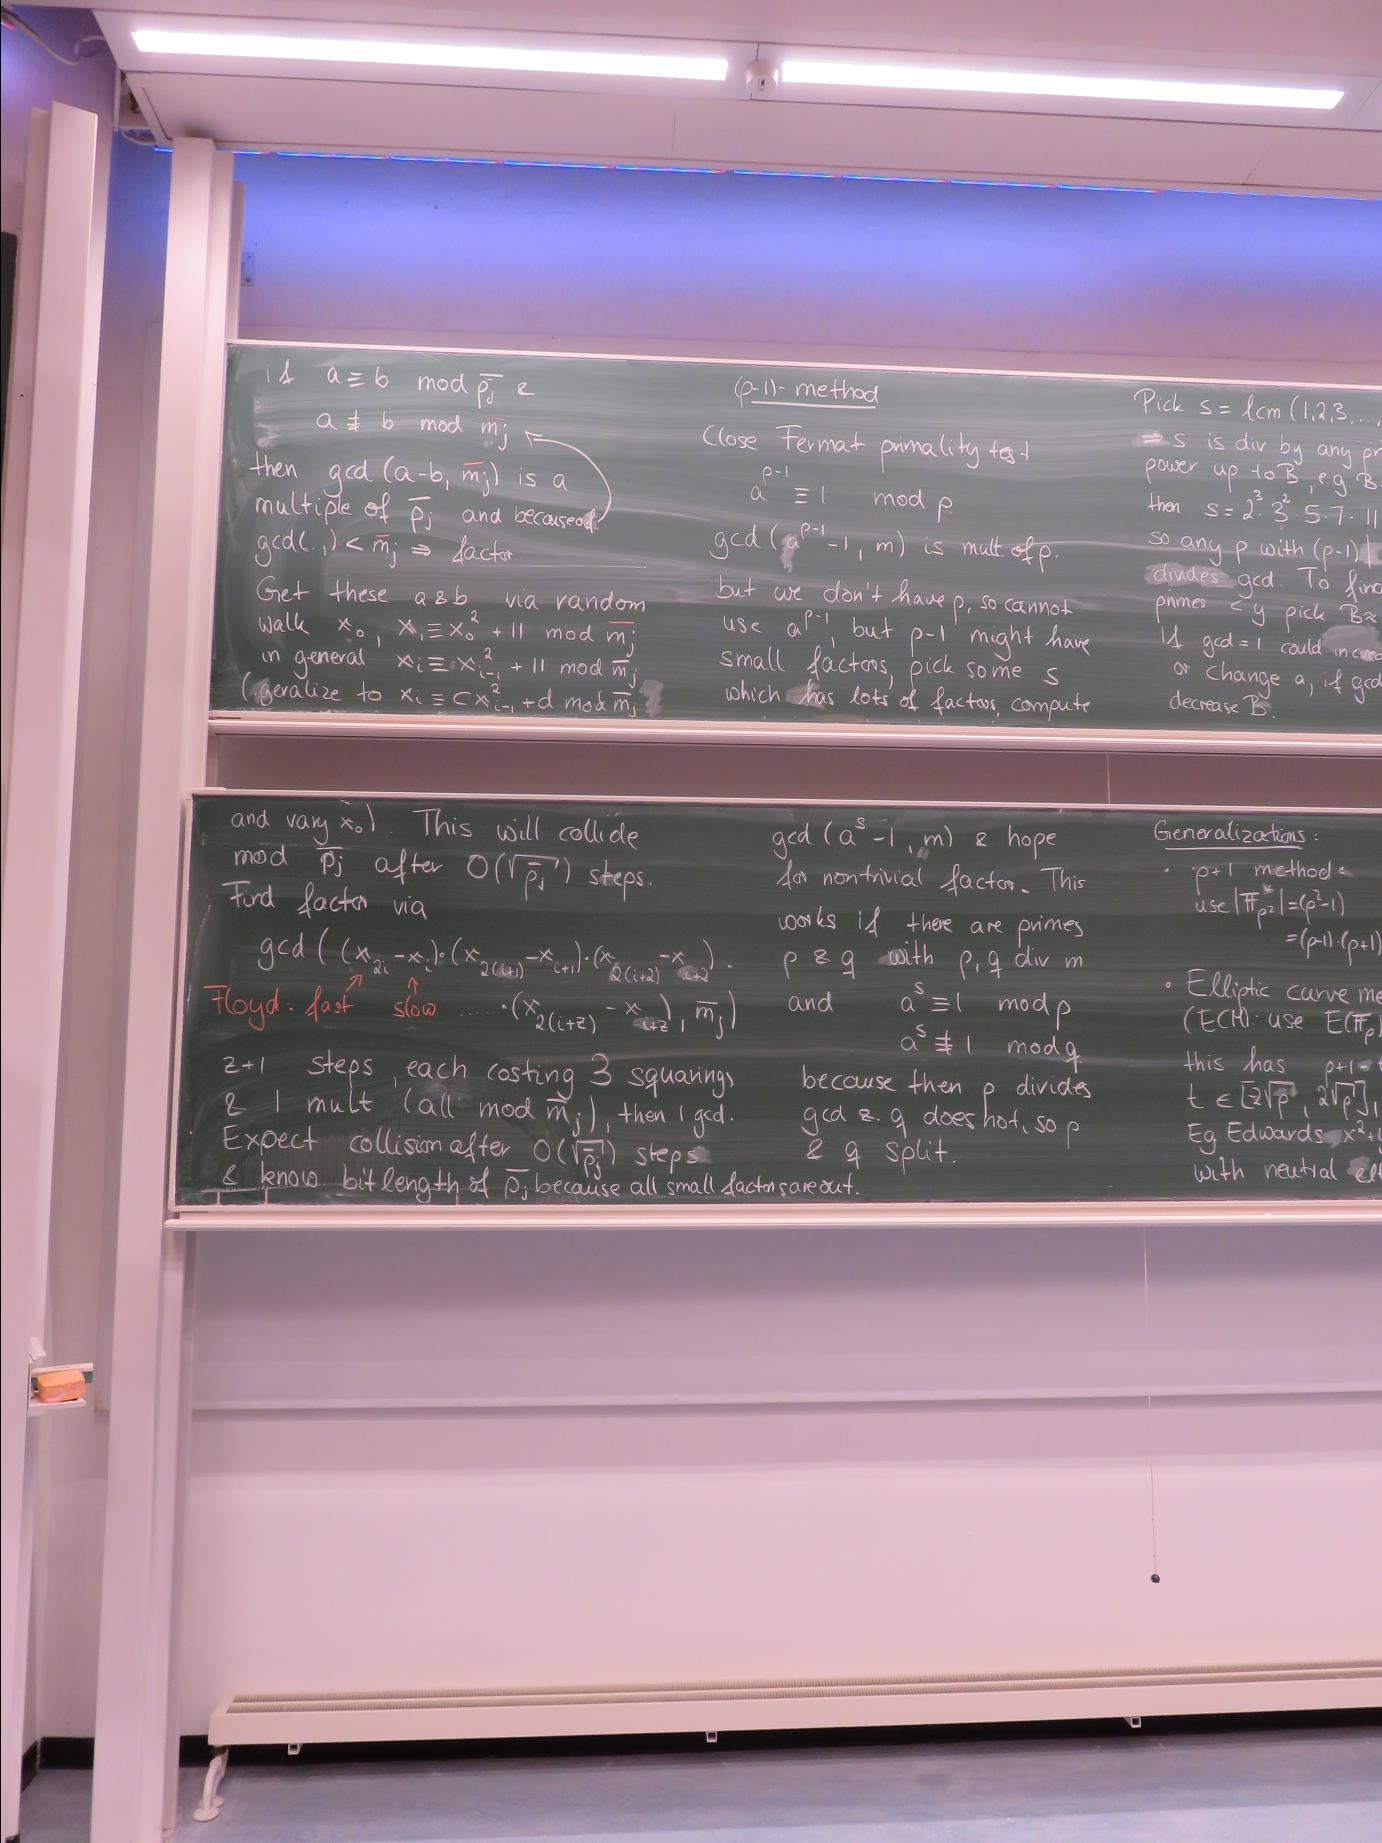 if a ≡ b mod p̄j &
a ≢ b mod m̄j
then gcd (a-b, m̄j) is a
multiple of p̄j and because of
gcd(.,.) < m̄j ⇒ factor
Get these a & b via random
walk x₀, x₁ ≡ x₀² + 11 mod m̄j
in general xᵢ ≡ xᵢ₋₁² + 11 mod m̄j
(geralize to xᵢ ≡ cxᵢ₋₁² + d mod m̄j
and vary x₀). This will collide
mod p̄j after O(√p̄j) steps.
Find factor via
gcd ( (x₂ᵢ - xᵢ)·(x₂₍ᵢ₊₁₎ - xᵢ₊₁)·(x₂₍ᵢ₊₂₎ - xᵢ₊₂).
Floyd: fast ↗ slow ↑ ......·(x₂₍ᵢ₊z₎ - xᵢ₊z), m̄j)
z+1 steps, each costing 3 squarings
& 1 mult (all mod m̄j), then 1 gcd.
Expect collision after O(√p̄j) steps
& know bit length of p̄j because all small factors are out.
(p-1)- method
Close Fermat primality test
a^(p-1) ≡ 1 mod p
gcd (a^(p-1) - 1, m) is mult. of p.
but we don't have p, so cannot
use a^(p-1), but p-1 might have
small factors, pick some s
which has lots of factors, compute
gcd (a^s - 1, m) & hope
for nontrivial factor. This
works if there are primes
p & q with p, q div m
and a^s ≡ 1 mod p
a^s ≢ 1 mod q
because then p divides
gcd & q does not, so p
& q split.
Pick s = lcm (1,2,3,...,
⇒ s is div by any pr
power up to B, e.g. B=
then s = 2³·3²·5·7·11
so any p with (p-1)|
divides gcd. To find
primes < y pick B≈
If gcd = 1 could increa
or change a, if gcd
decrease B.
Generalizations:
· p+1 method:
use |𝔽*_p²| = (p²-1)
= (p-1)·(p+1)
· Elliptic curve me
(ECM): use E(𝔽p)
this has p+1-t
t ∈ [2√p, 2√p],
Eg Edwards x²+y
with neutral elt